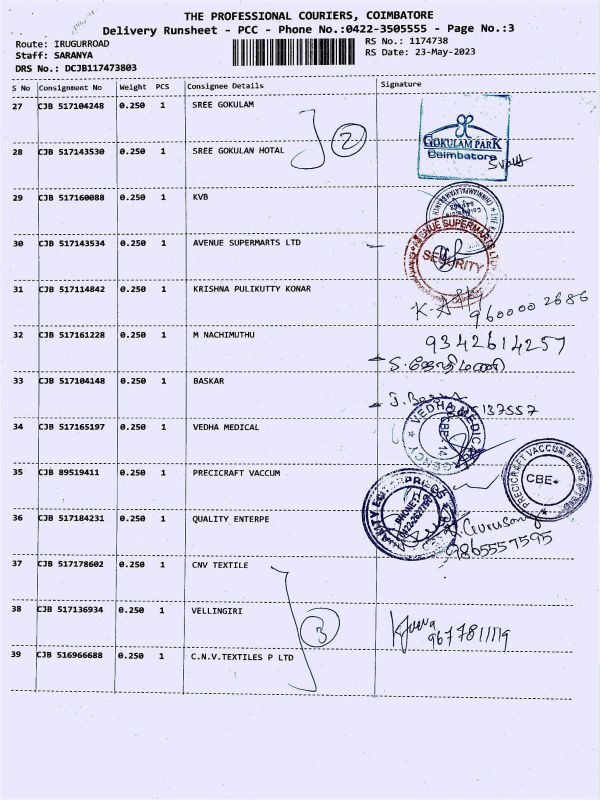 THE PROFESSIONAL COURIERS, COIMBATORE
Delivery Runsheet - PCC - Phone No.:0422-3505555 - Page No.:3
Route: IRUGURROAD
RS No.: 1174738
Staff: SARANYA
RS Date: 23-May-2023
DRS No.: DCJB117473803
S No Consignment No Weight PCS Consignee Details Signature
27 CJB 517104248 0.250 1 SREE GOKULAM
2
GOKULAM PARK
Coimbatore
28 CJB 517143530 0.250 1 SREE GOKULAN HOTAL
29 CJB 517160088 0.250 1 KVB
30 CJB 517143534 0.250 1 AVENUE SUPERMARTS LTD
AVENUE SUPERMARTS LTD
SECURITY
31 CJB 517114842 0.250 1 KRISHNA PULIKUTTY KONAR
960000 2686
32 CJB 517161228 0.250 1 M NACHIMUTHU
9342614257
S. ஜோதிமணி
33 CJB 517104148 0.250 1 BASKAR
137557
34 CJB 517165197 0.250 1 VEDHA MEDICAL
VEDHA MEDICAL AGENCY
CBE-14
35 CJB 89519411 0.250 1 PRECICRAFT VACCUM
PRECICRAFT VACCUM PUMPS
CBE
36 CJB 517184231 0.250 1 QUALITY ENTERPE
9865557595
37 CJB 517178602 0.250 1 CNV TEXTILE
38 CJB 517136934 0.250 1 VELLINGIRI
3
9677811119
39 CJB 516966688 0.250 1 C.N.V.TEXTILES P LTD